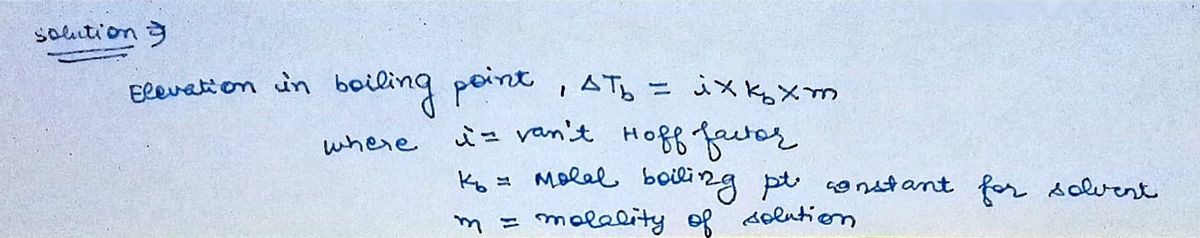 solution ⇒
Elevation in boiling point, ΔTb = i × kb × m
where i = van't Hoff factor
Kb = Molal boiling pt. constant for solvent
m = molality of solution